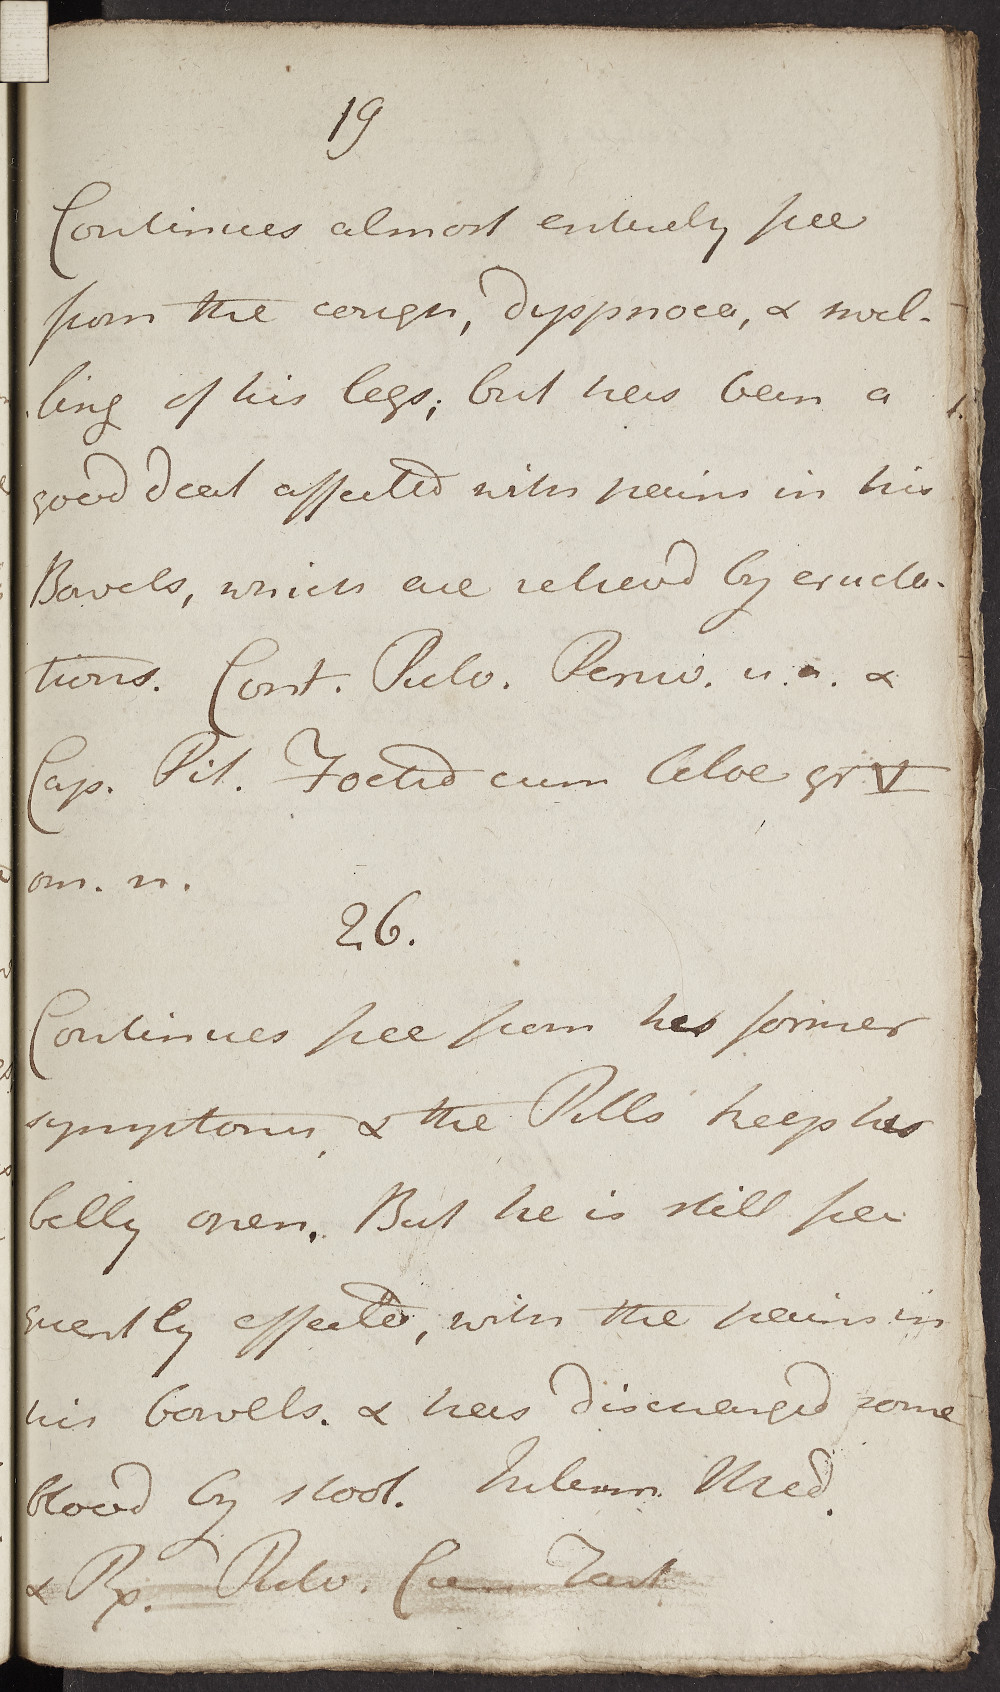 19
Continues almost entirely free
from the cough, dyspnoea, & swel-
ling of his legs; but has been a
good deal affected with pains in his
Bowels, which are reliev'd by eructa-
tions. Cont. Pulv. Peruv. u. a. &
Cap. Pil. Foetid cum Aloe gr V
om. n.
26.
Continues free from his former
symptoms, & the Pills keep his
belly open. But he is still fre
quently affected, with the pains in
his bowells. & has discharged some
blood by stool. Interm. Med.
& Rx. Pulv. Tart